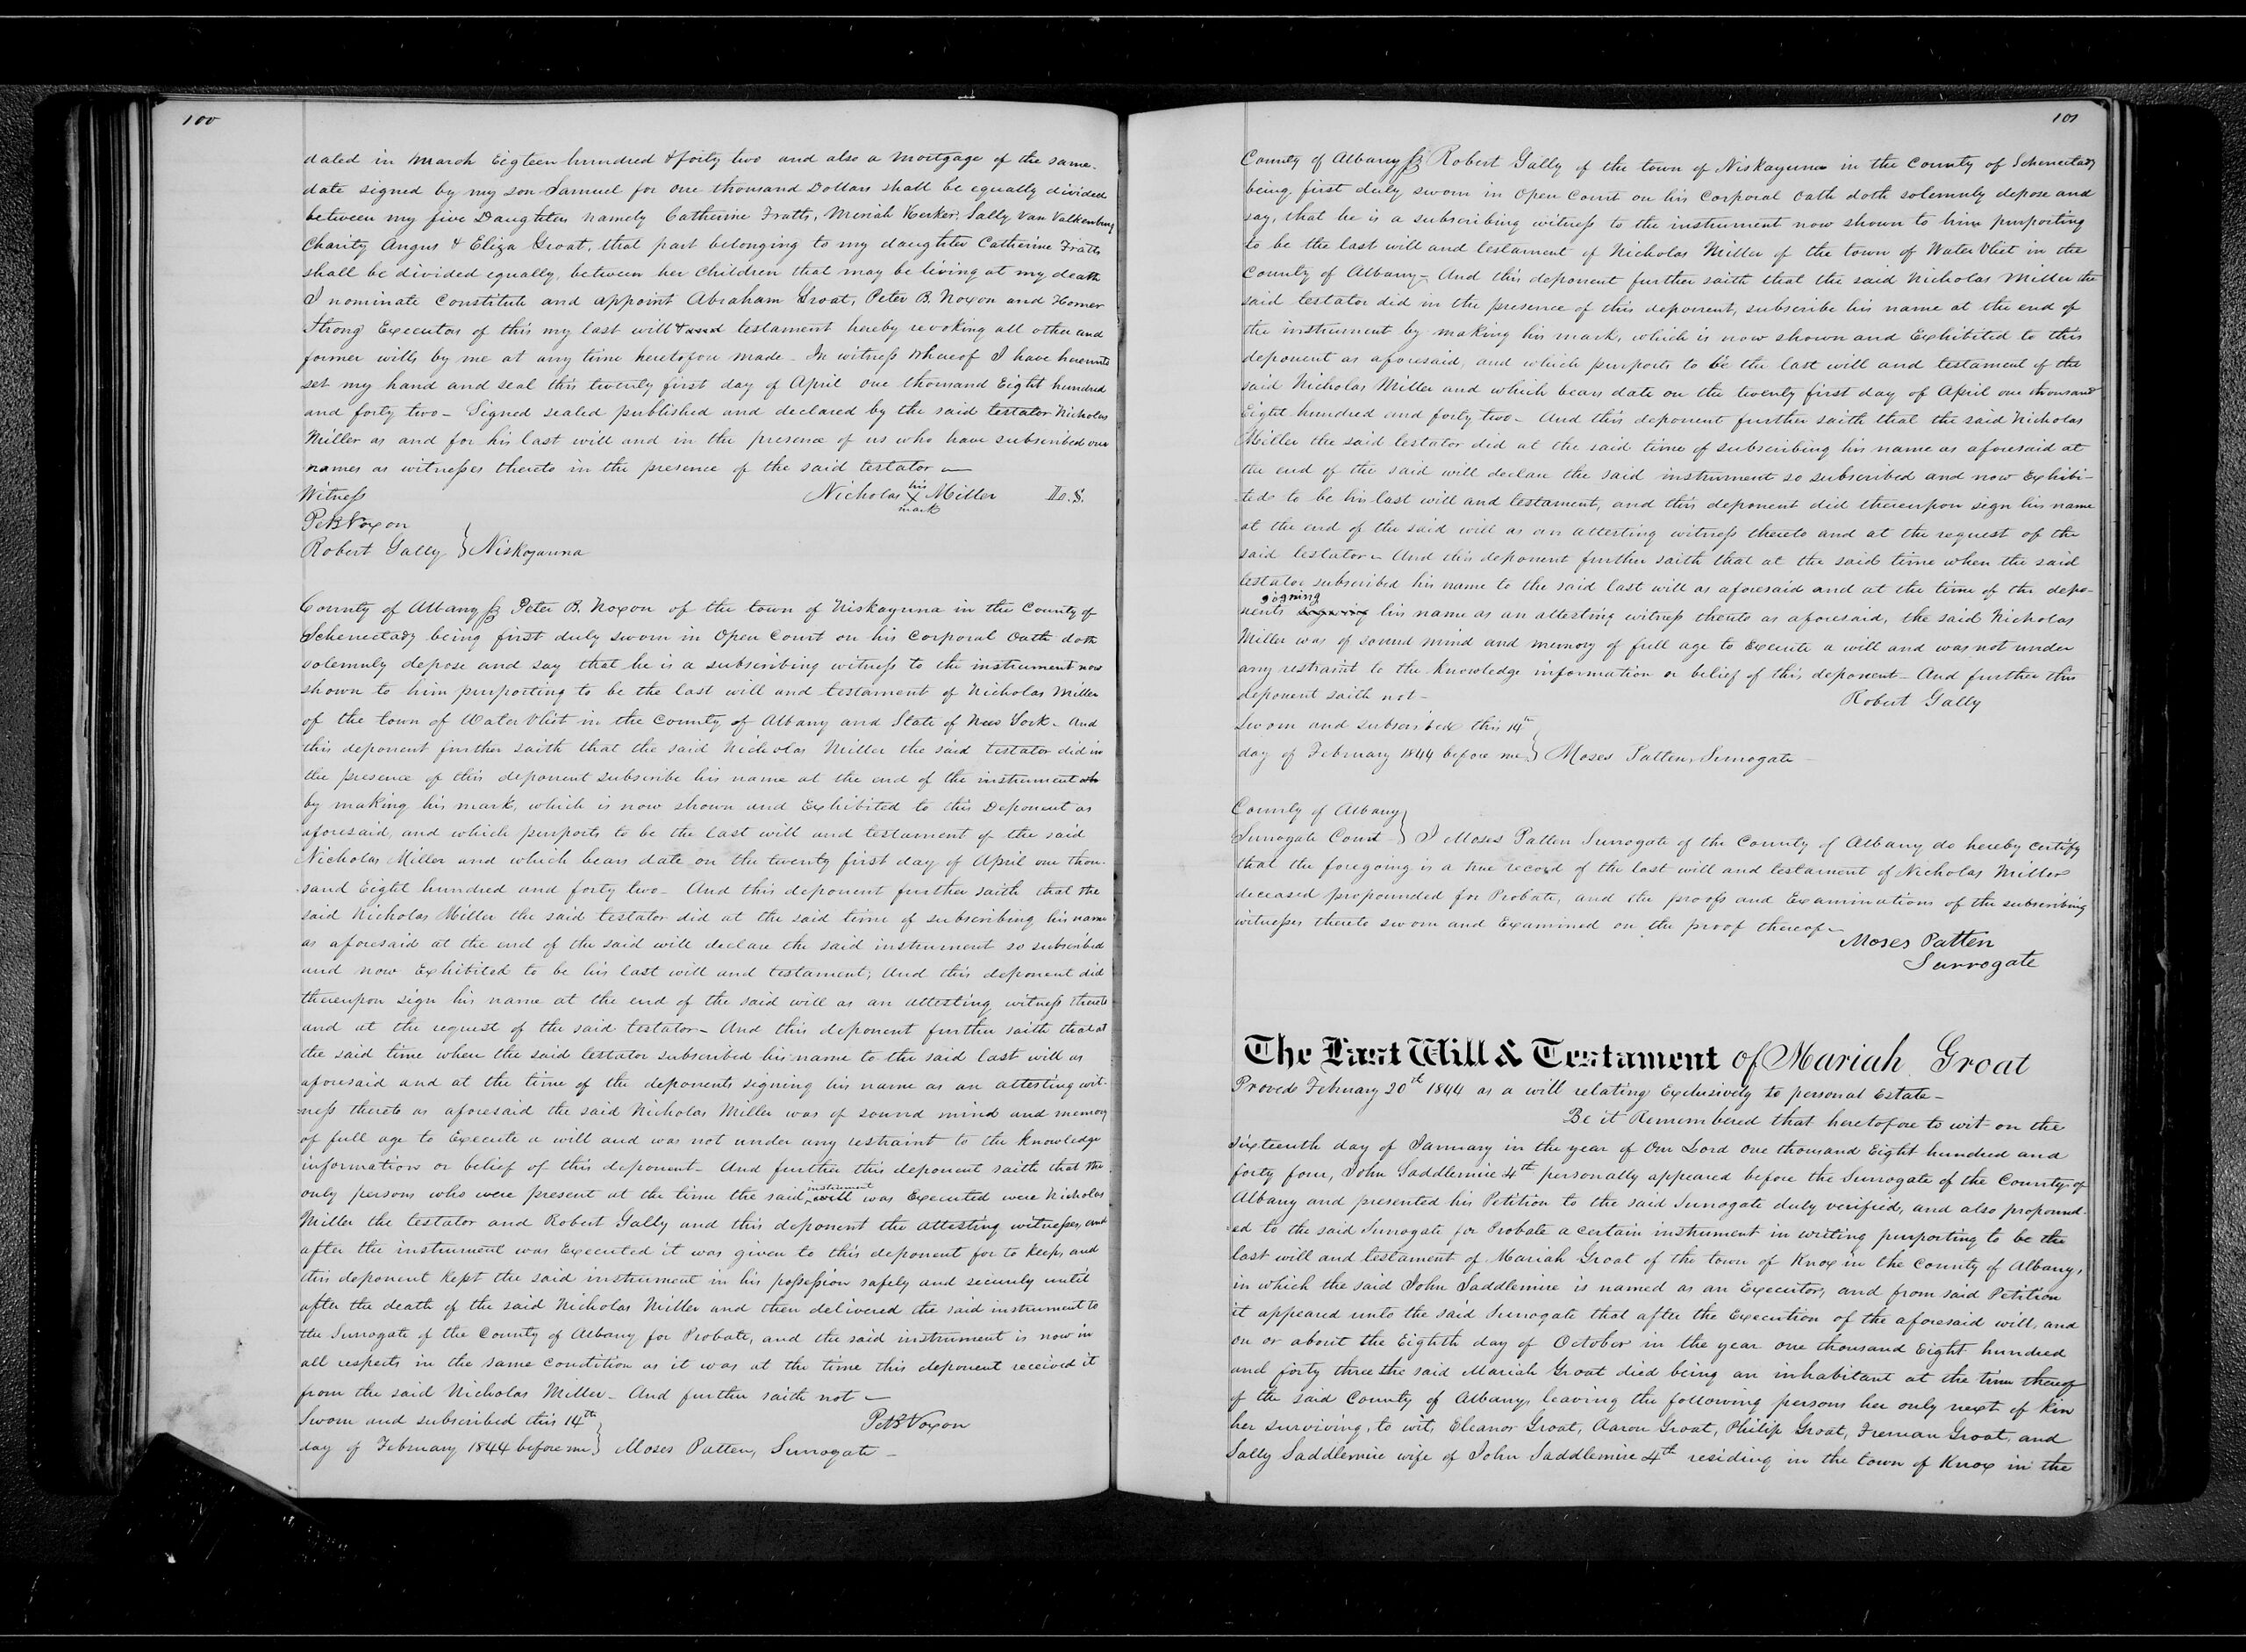 100
dated in March Eigteen hundred & forty two and also a Mortgage of the same
date signed by my son Samuel for one thousand Dollars shall be equally divided
between my five Daughters namely Catherine Fratts, Meriah Kerker, Sally Van Valkenburg
Charity Angus & Eliza Groat, that part belonging to my daughter Catherine Fratts
shall be divided equally, between her children that may be living at my death
I nominate Constitute and appoint Abraham Groat, Peter B. Noxon and Homer
Strong Executors of this my last will & testament hereby revoking all other and
former wills by me at any time heretofore made - In witness Whereof I have hereunto
set my hand and seal this twenty first day of April one thousand Eight hundred
and forty two - Signed sealed published and declared by the said testator Nicholas
Miller as and for his last will and in the presence of us who have subscribed our
names as witnesses thereto in the presence of the said testator -
Witness Nicholas his X mark Miller L.S.
Pet B Noxon
Robert Gally } Niskayunna
County of Albany ss Peter B. Noxon of the town of Niskayuna in the County of
Schenectady being first duly sworn in Open Court on his Corporal Oath doth
solemnly depose and say that he is a subscribing witness to the instrument now
shown to him purporting to be the last will and testament of Nicholas Miller
of the town of WaterVliet in the County of Albany and State of New York - And
this deponent further saith that the said Nicholas Miller the said testator did in
the presence of this deponent subscribe his name at the end of the instrument
by making his mark, which is now shown and Exhibited to this Deponent as
aforesaid, and which purports to be the last will and testament of the said
Nicholas Miller and which bears date on the twenty first day of April one thou-
sand Eight hundred and forty two - And this deponent further saith that the
said Nicholas Miller the said testator did at the said time of subscribing his name
as aforesaid at the end of the said will declare the said instrument so subscribed
and now Exhibited to be his last will and testament; And this deponent did
thereupon sign his name at the end of the said will as an attesting witness thereto
and at the request of the said testator - And this deponent further saith that at
the said time when the said testator subscribed his name to the said last will as
aforesaid and at the time of the deponents signing his name as an attesting wit-
ness thereto as aforesaid the said Nicholas Miller was of sound mind and memory
of full age to Execute a will and was not under any restraint to the knowledge
information or belief of this deponent - And further this deponent saith that the
only persons who were present at the time the said instrument will was Executed were Nicholas
Miller the testator and Robert Gally and this deponent the attesting witnesses, and
after the instrument was Executed it was given to this deponent for to keep, and
this deponent kept the said instrument in his possession safely and securely until
after the death of the said Nicholas Miller and then delivered the said instrument to
the Surrogate of the County of Albany for Probate, and the said instrument is now in
all respects in the same condition as it was at the time this deponent received it
from the said Nicholas Miller - And further saith not -
Sworn and subscribed this 14th Pet B Noxon
day of February 1844 before me } Moses Patten, Surrogate -
101
County of Albany ss Robert Gally of the town of Niskayuna in the County of Schenectady
being first duly sworn in Open Court on his Corporal Oath doth solemnly depose and
say, that he is a subscribing witness to the instrument now shown to him purporting
to be the last will and testament of Nicholas Miller of the town of WaterVliet in the
County of Albany - And this deponent further saith that the said Nicholas Miller the
said testator did in the presence of this deponent, subscribe his name at the end of
the instrument by making his mark, which is now shown and Exhibited to this
deponent as aforesaid, and which purports to be the last will and testament of the
said Nicholas Miller and which bears date on the twenty first day of April one thousand
Eight hundred and forty two - And this deponent further saith that the said Nicholas
Miller the said testator did at the said time of subscribing his name as aforesaid at
the end of the said will declare the said instrument so subscribed and now Exhibi-
ted to be his last will and testament, and this deponent did thereupon sign his name
at the end of the said will as an attesting witness thereto and at the request of the
said testator - And this deponent further saith that at the said time when the said
testator subscribed his name to the said last will as aforesaid and at the time of the depo-
nents signing his name as an attesting witness thereto as aforesaid, the said Nicholas
Miller was of sound mind and memory of full age to Execute a will and was not under
any restraint to the knowledge information or belief of this deponent - And further this
deponent saith not - Robert Gally
Sworn and subscribed this 14th
day of February 1844 before me } Moses Patten, Surrogate -
County of Albany
Surrogate Court } I Moses Patten Surrogate of the County of Albany do hereby certify
that the foregoing is a true record of the last will and testament of Nicholas Miller
deceased propounded for Probate, and the proofs and Examinations of the subscribing
witnesses thereto sworn and Examined on the proof thereof -
Moses Patten
Surrogate
The Last Will & Testament of Mariah Groat
Proved February 20th 1844 as a will relating Exclusively to personal Estate -
Be it Remembered that heretofore to wit - on the
sixteenth day of January in the year of Our Lord One thousand Eight hundred and
forty four, John Saddlemire 4th personally appeared before the Surrogate of the County of
Albany and presented his Petition to the said Surrogate duly verified, and also propound-
ed to the said Surrogate for Probate a certain instrument in writing purporting to be the
last will and testament of Mariah Groat of the town of Knox in the County of Albany,
in which the said John Saddlemire is named as an Executor, and from said Petition
it appeared unto the said Surrogate that after the Execution of the aforesaid will, and
on or about the Eighth day of October in the year one thousand Eight hundred
and forty three the said Mariah Groat died being an inhabitant at the time thereof
of the said County of Albany, leaving the following persons her only next of kin
her surviving, to wit, Eleanor Groat, Aaron Groat, Philip Groat, Freeman Groat, and
Sally Saddlemire wife of John Saddlemire 4th residing in the town of Knox in the